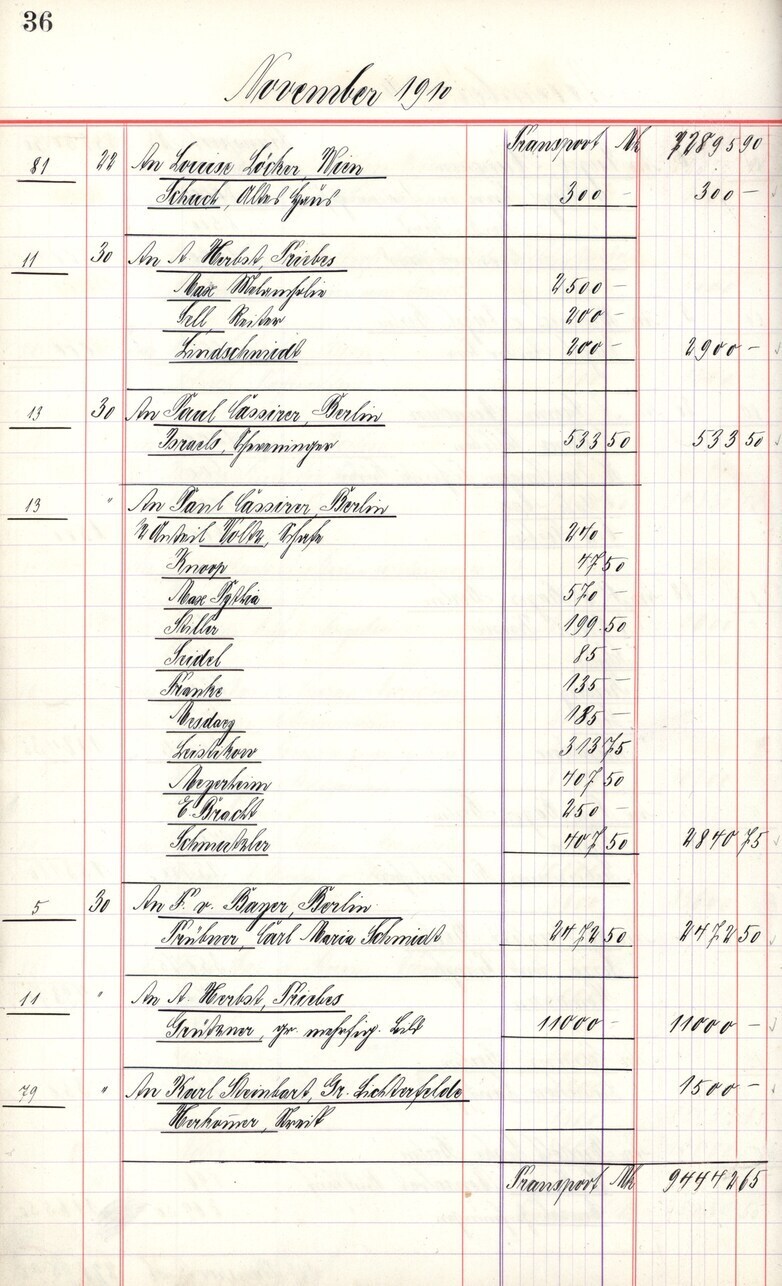 36
November 1910
Transport Mk 72895 90
81 22 An Louise Löcher, Wien
Schuch, Altes Haus 300 – 300 –
11 30 An A. Herbst, Priebus
Max Melancholie 2500 –
Sell Reiter 200 –
Lindschmidt 200 – 2900 –
13 30 An Paul Cassirer, Berlin
Israels, Scheveningen 533 50 533 50
13 " An Paul Cassirer, Berlin
Anteil Voltz, Schafe 240 –
Knoop 47 50
Max Pythia 570 –
Stiller 199.50
Seidel 85 –
Franke 135 –
Mesdag 185 –
Leistikow 313 75
Meyerheim 407 50
E. Bracht 250 –
Schmutzler 407 50 2840 75
5 30 An F. v. Bayer, Berlin
Trübner, Carl Maria Schmidt 2472 50 2472 50
11 " An A. Herbst, Priebus
Grützner, gr. mehrfig. Bild 11000 – 11000 –
79 " An Karl Steinbart, Gr. Lichterfelde 1500 –
Herkom̄er, Streik
Transport Mk 94442 65